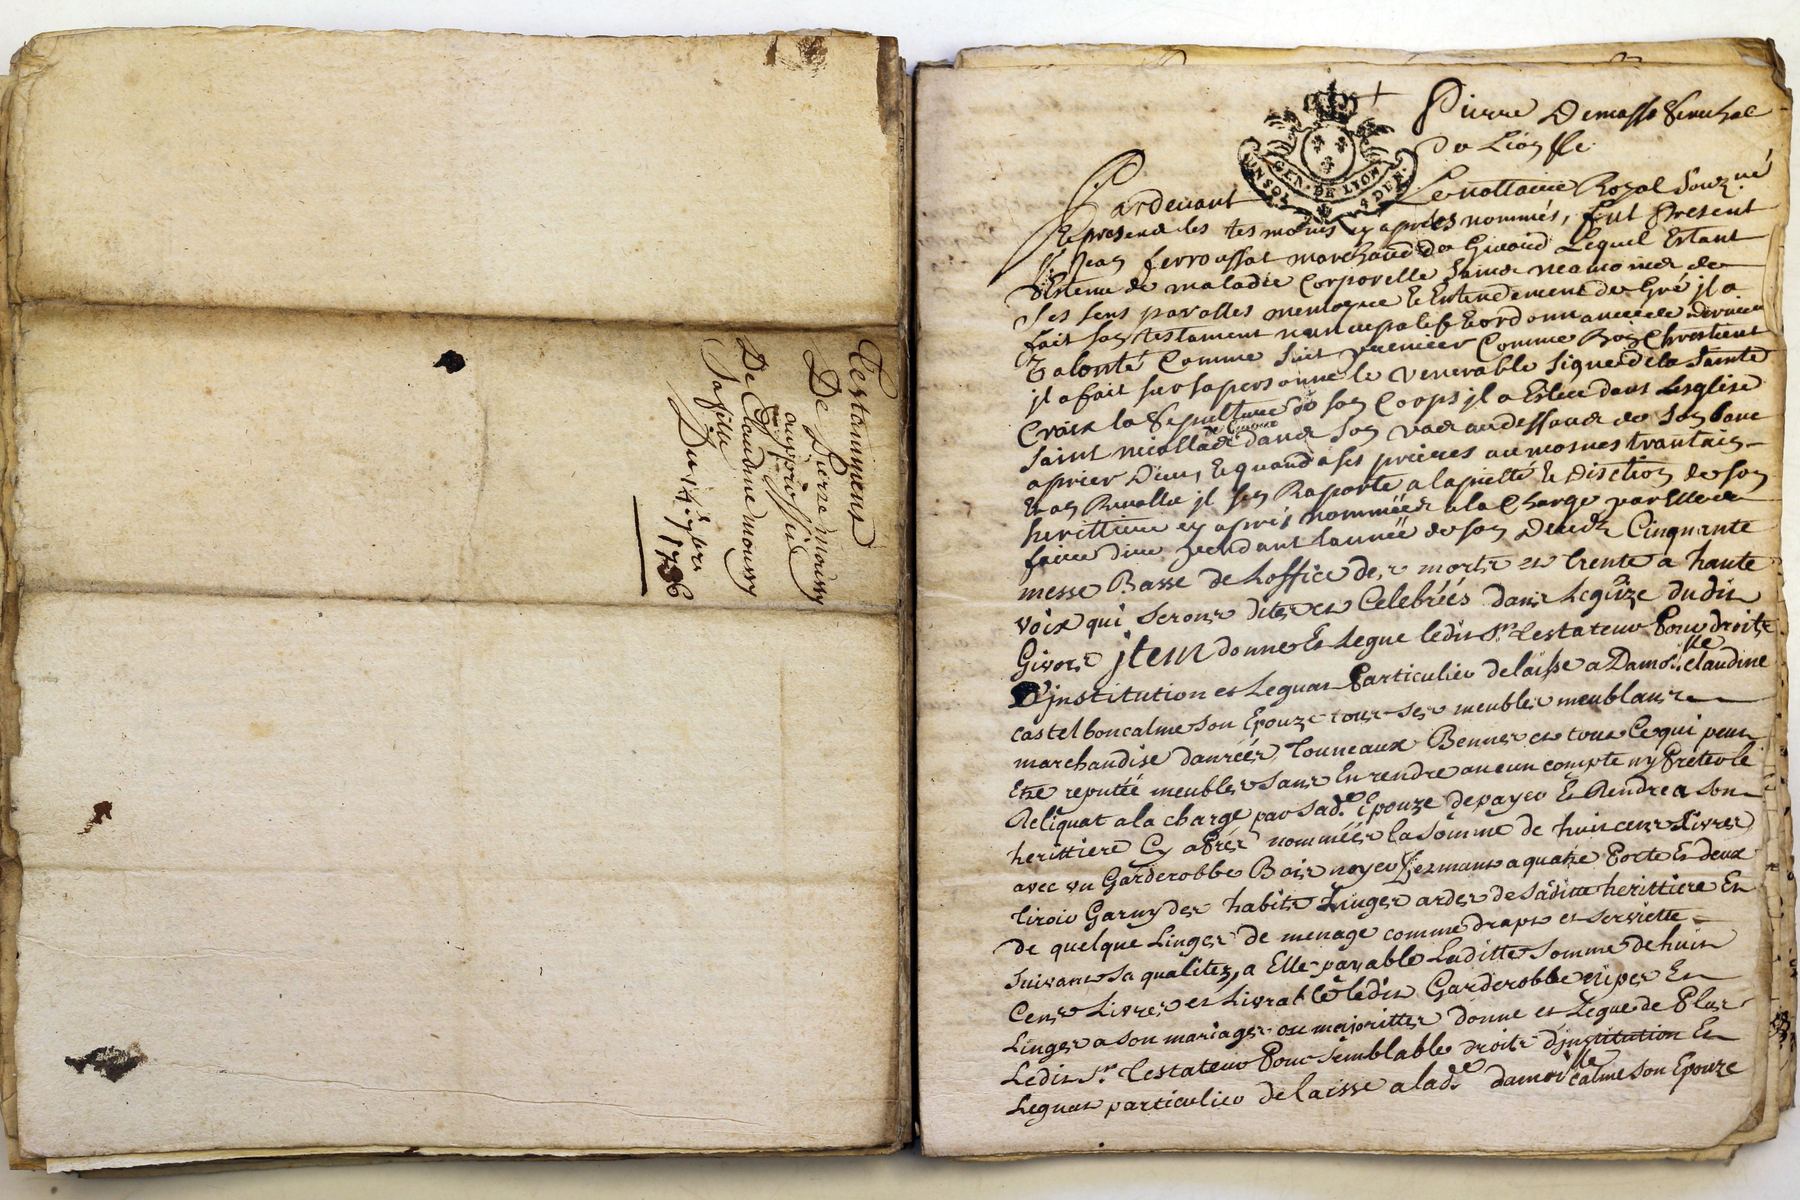 Testamment
De Pierre moussy
au proffit
De Claudine moussy
Sa fille
Du 14e 7bre 1736
Pierre Demasso Senechal
De Lion
GEN. DE LYON
UN SOL 4 DEN.
Pardevant Le nottaire Royal Sousné
Et presens les tesmoins cy apres nommés, fut Present
Sr Jean ferroussat marchand de Givord Lequel Estant
destenu de maladie Corporelle Sains neamoins de
Ses sens parolles memoyre Et Entendement de Gré jl a
fait son testament nuncupatif Et ordonnance de derniere
Volonté Comme suit premier Comme Bon Chrestient
jl a fait sur sa personne le venerable Signe de la Sainte
Croix la Sepulture de son Corps jl a Esleu dans Lesglise
de Givors
Saint nicollas dans son au dessous de son banc
a prier Dieu, Et quand a ses prieres aumosnes
jl sen Raporte a la pietté Et Disction de son
herittiere cy apres nommée a la Charge par Elle de
faire dire pendant lannée de son Deceds Cinquante
messe Basse de Loffice des morts et trente a haute
voix qui seront dites et Celebréés dans Leglize dudit
Givors jtem donne Et Legue ledit Sr testateur Pour droits
D'jnstitution et Legat Particulier delaisse a Damoiselle claudine
castelboncalme son Epouze tous ses meubles meublants
marchandise danréés Tonneaux Bennes et tout Ce qui peut
Etre reputéé meubles sans En rendre aucun compte ny Preter le
Reliquat a la charge par sade Epouze de payer Et Rendre a son
herittiere Cy aprés nomméé la somme de huit cent Livres
avec un Garderobbe Bois noyer fermant a quatre Porte Et deux
tiroir Garny des habits Linges ardes de sadite herittiere Et
de quelque Linges de menage comme draps et serviette
suivant sa qualitez, a Elle payable Laditte somme de huit
Cent Livres et Livrable ledit Garderobbe nipes Et
Linges a son mariage ou majoritté donne et Legue de Plus
Ledit Sr Testateur Pour semblable droits d'jnstitution Et
Legat particulier delaisse a lade damoiselle calme son Epouze